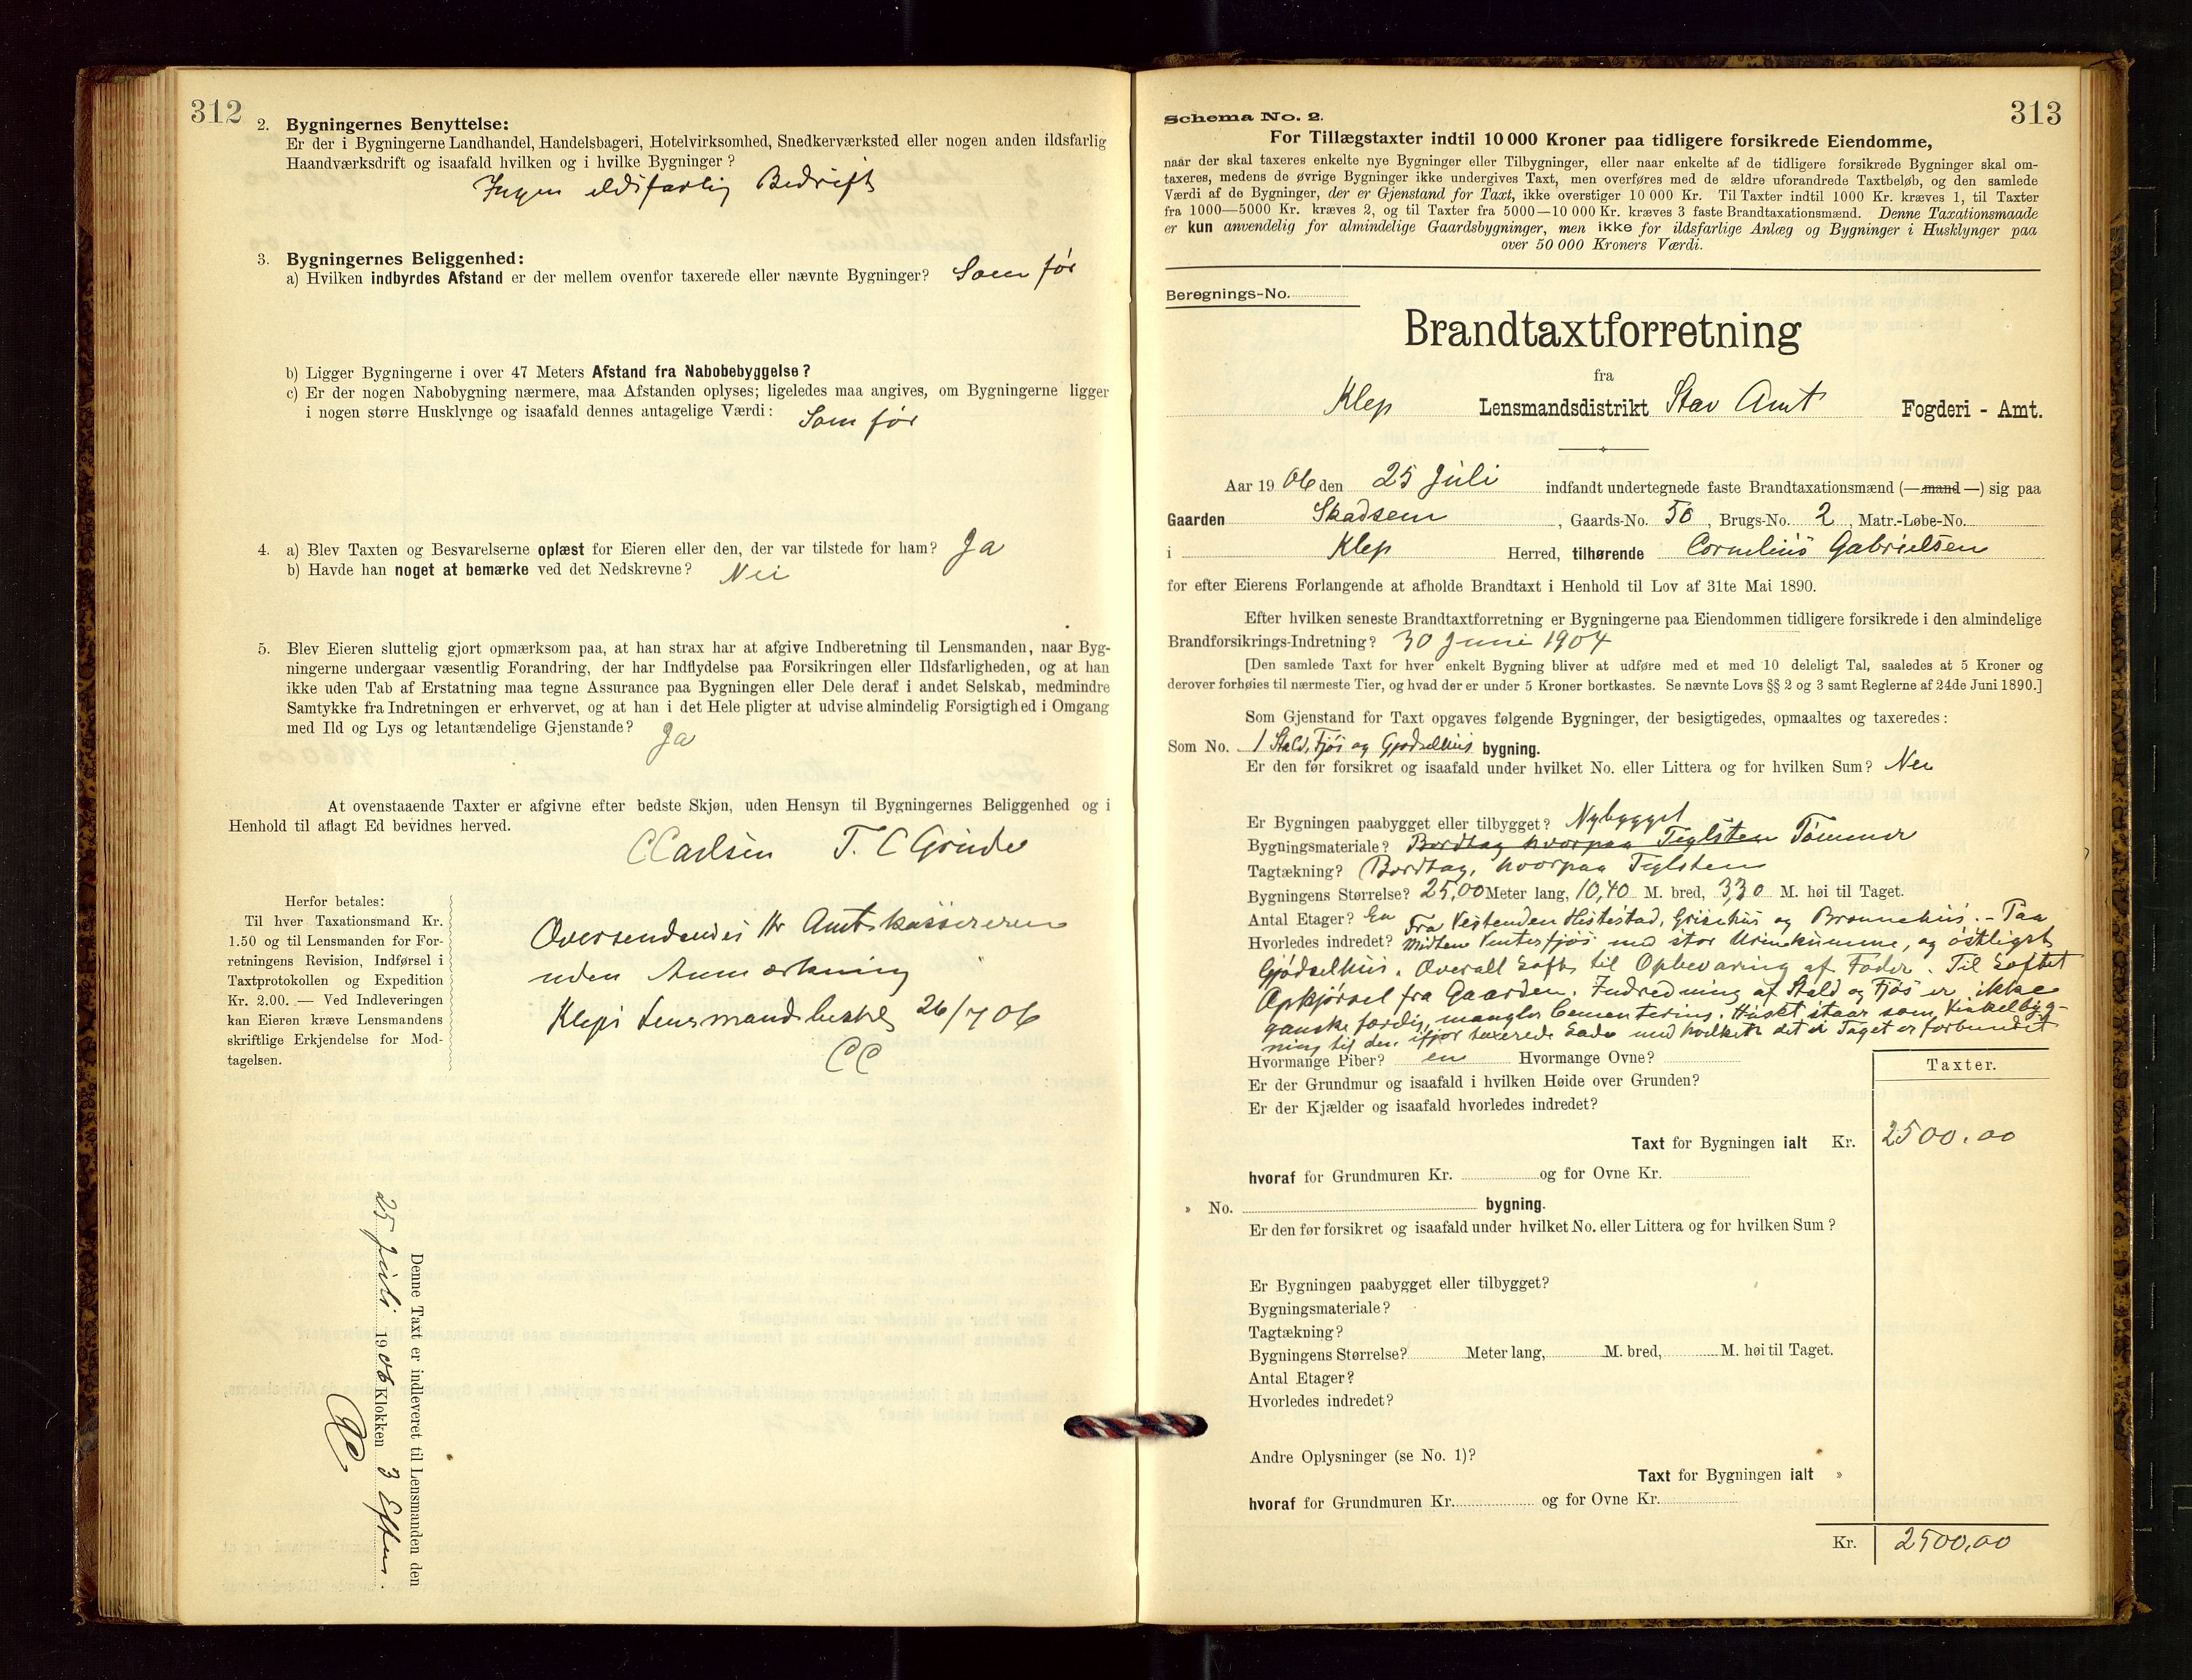 312
2. Bygningernes Benyttelse:
Er der i Bygningerne Landhandel, Handelsbageri, Hotelvirksomhed, Snedkerværksted eller nogen anden ildsfarlig
Haandværksdrift og isaafald hvilken og i hvilke Bygninger?
Ingen ildsfarlig Bedrift
3. Bygningernes Beliggenhed:
a) Hvilken indbyrdes Afstand er der mellem ovenfor taxerede eller nævnte Bygninger? Som før
b) Ligger Bygningerne i over 47 Meters Afstand fra Nabobebyggelse?
c) Er der nogen Nabobygning nærmere, maa Afstanden oplyses; ligeledes maa angives, om Bygningerne ligger
i nogen større Husklynge og isaafald dennes antagelige Værdi: Som før
4. a) Blev Taxten og Besvarelserne oplæst for Eieren eller den, der var tilstede for ham? Ja
b) Havde han noget at bemærke ved det Nedskrevne? Nei
5. Blev Eieren sluttelig gjort opmærksom paa, at han strax har at afgive Indberetning til Lensmanden, naar Byg-
ningerne undergaar væsentlig Forandring, der har Indflydelse paa Forsikringen eller Ildsfarligheden, og at han
ikke uden Tab af Erstatning maa tegne Assurance paa Bygningen eller Dele deraf i andet Selskab, medmindre
Samtykke fra Indretningen er erhvervet, og at han i det Hele pligter at udvise almindelig Forsigtighed i Omgang
med Ild og Lys og letantændelige Gjenstande? Ja
At ovenstaaende Taxter er afgivne efter bedste Skjøn, uden Hensyn til Bygningernes Beliggenhed og i
Henhold til aflagt Ed bevidnes herved.
C Carlsen T. C Grude
Herfor betales:
Til hver Taxationsmand Kr.
1.50 og til Lensmanden for For-
retningens Revision, Indførsel i
Taxtprotokollen og Expedition
Kr. 2.00. — Ved Indleveringen
kan Eieren kræve Lensmandens
skriftlige Erkjendelse for Mod-
tagelsen.
Oversendes Hr Amtskassereren
uden Anmærkning
Kleps Lensmandsbestil 26/7 06
CC
Denne Taxt er indleveret til Lensmanden den
25 Juli 1906 Klokken 3 Efterm
CC
313
Schema No. 2.
For Tillægstaxter indtil 10 000 Kroner paa tidligere forsikrede Eiendomme,
naar der skal taxeres enkelte nye Bygninger eller Tilbygninger, eller naar enkelte af de tidligere forsikrede Bygninger skal om-
taxeres, medens de øvrige Bygninger ikke undergives Taxt, men overføres med de ældre uforandrede Taxtbeløb, og den samlede
Værdi af de Bygninger, der er Gjenstand for Taxt, ikke overstiger 10 000 Kr. Til Taxter indtil 1000 Kr. kræves 1, til Taxter
fra 1000—5000 Kr. kræves 2, og til Taxter fra 5000—10 000 Kr. kræves 3 faste Brandtaxationsmænd. Denne Taxationsmaade
er kun anvendelig for almindelige Gaardsbygninger, men ikke for ildsfarlige Anlæg og Bygninger i Husklynger paa
over 50 000 Kroners Værdi.
Beregnings-No.
Brandtaxtforretning
fra
Klep Lensmandsdistrikt Stav Amt Fogderi - Amt.
Aar 1906 den 25 Juli indfandt undertegnede faste Brandtaxationsmænd (—mand—) sig paa
Gaarden Skadsem, Gaards-No. 50, Brugs-No. 2, Matr.-Løbe-No.
i Klep Herred, tilhørende Cornelius Gabrielsen
for efter Eierens Forlangende at afholde Brandtaxt i Henhold til Lov af 31te Mai 1890.
Efter hvilken seneste Brandtaxtforretning er Bygningerne paa Eiendommen tidligere forsikrede i den almindelige
Brandforsikrings-Indretning? 30 Juni 1904
[Den samlede Taxt for hver enkelt Bygning bliver at udføre med et med 10 deleligt Tal, saaledes at 5 Kroner og
derover forhøies til nærmeste Tier, og hvad der er under 5 Kroner bortkastes. Se nævnte Lovs §§ 2 og 3 samt Reglerne af 24de Juni 1890.]
Som Gjenstand for Taxt opgaves følgende Bygninger, der besigtigedes, opmaaltes og taxeredes:
Som No. 1 Stald, Fjøs og Gjødselhus bygning.
Er den før forsikret og isaafald under hvilket No. eller Littera og for hvilken Sum? Nei
Er Bygningen paabygget eller tilbygget? Nybygget
Bygningsmateriale? Bordtag hvorpaa Teglsten Tømmer
Tagtækning? Bordtag, hvorpaa Teglsten
Bygningens Størrelse? 25,00 Meter lang, 10,40 M. bred, 3,30 M. høi til Taget.
Antal Etager? En Fra Vestenden Hestestad, Grisehus og Brønnehus. - Paa
Hvorledes indredet? Midten Vinterfjøs med stor Urinkumme, og østligst
Gjødselhus. Overalt Lofts til Opbevaring af Foder. Til Loftet
Opkjørsel fra Gaarden. Indredning af Stald og Fjøs er ikke
ganske færdig, mangler Cementering. Huset staar som Vinkelbyg-
ning til den ifjor taxerede Lade med hvilken det i Taget er forbundet
Hvormange Piber? en Hvormange Ovne?
Er der Grundmur og isaafald i hvilken Høide over Grunden?
Er der Kjælder og isaafald hvorledes indredet?
Taxter.
Taxt for Bygningen ialt Kr. 2500.00
hvoraf for Grundmuren Kr. og for Ovne Kr.
» No. bygning.
Er den før forsikret og isaafald under hvilket No. eller Littera og for hvilken Sum?
Er Bygningen paabygget eller tilbygget?
Bygningsmateriale?
Tagtækning?
Bygningens Størrelse? Meter lang, M. bred, M. høi til Taget.
Antal Etager?
Hvorledes indredet?
Andre Oplysninger (se No. 1)?
Taxt for Bygningen ialt »
hvoraf for Grundmuren Kr. og for Ovne Kr.
Kr. 2500,00